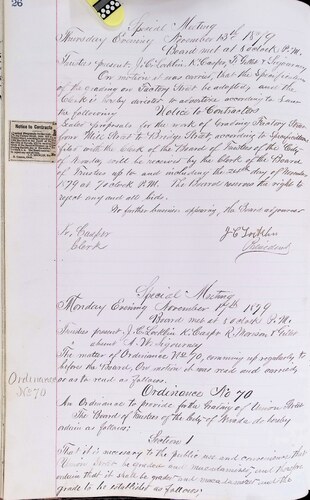 26
Special Meeting
Thursday Evening November 13th 1879
Board met at 8 oclock P.M.
Trustees present J. C. Locklin K. Casper F. Gillet &
On motion it was carried, that the Specification
of the grading on Factory Street be adopted, and the
Clerk is hereby directed to advertise according to law
the following Notice to Contractors
Sealed proposals for the work of Grading Factory Street
from Mill Street to Bridge Street, according to Specifications
filed with the Clerk of the Board of Trustees of the City
of Nevada will be received by the Clerk of the Board
of Trustees up to and including the day of November
1879 at 7 oclock P.M. The Board reserves the right to
reject any and all bids.
No further business appearing, the Board adjourned
K. Casper
Clerk
J. C. Locklin
President
Notice to Contractors
Special Meeting
Monday Evening November 17th 1879
Board met at 8 oclock P.M.
Trustees present J. C. Locklin K. Casper & Gillet
absent A. W.
The matter of Ordinance No 70, coming up regularly
before the Board, On motion it was and carried
as as to read as follows.
Ordinance
No. 70
Ordinance No 70
An Ordinance to provide for the Grading of Union Street
The Board of Trustees of the City of Nevada do hereby
ordain as follows:
Section 1
That it is necessary to the public use and convenience that
Union Street be graded and macadamized, and therefore
ordain that it shall be graded and macadamized and the
grade to be established as follows: